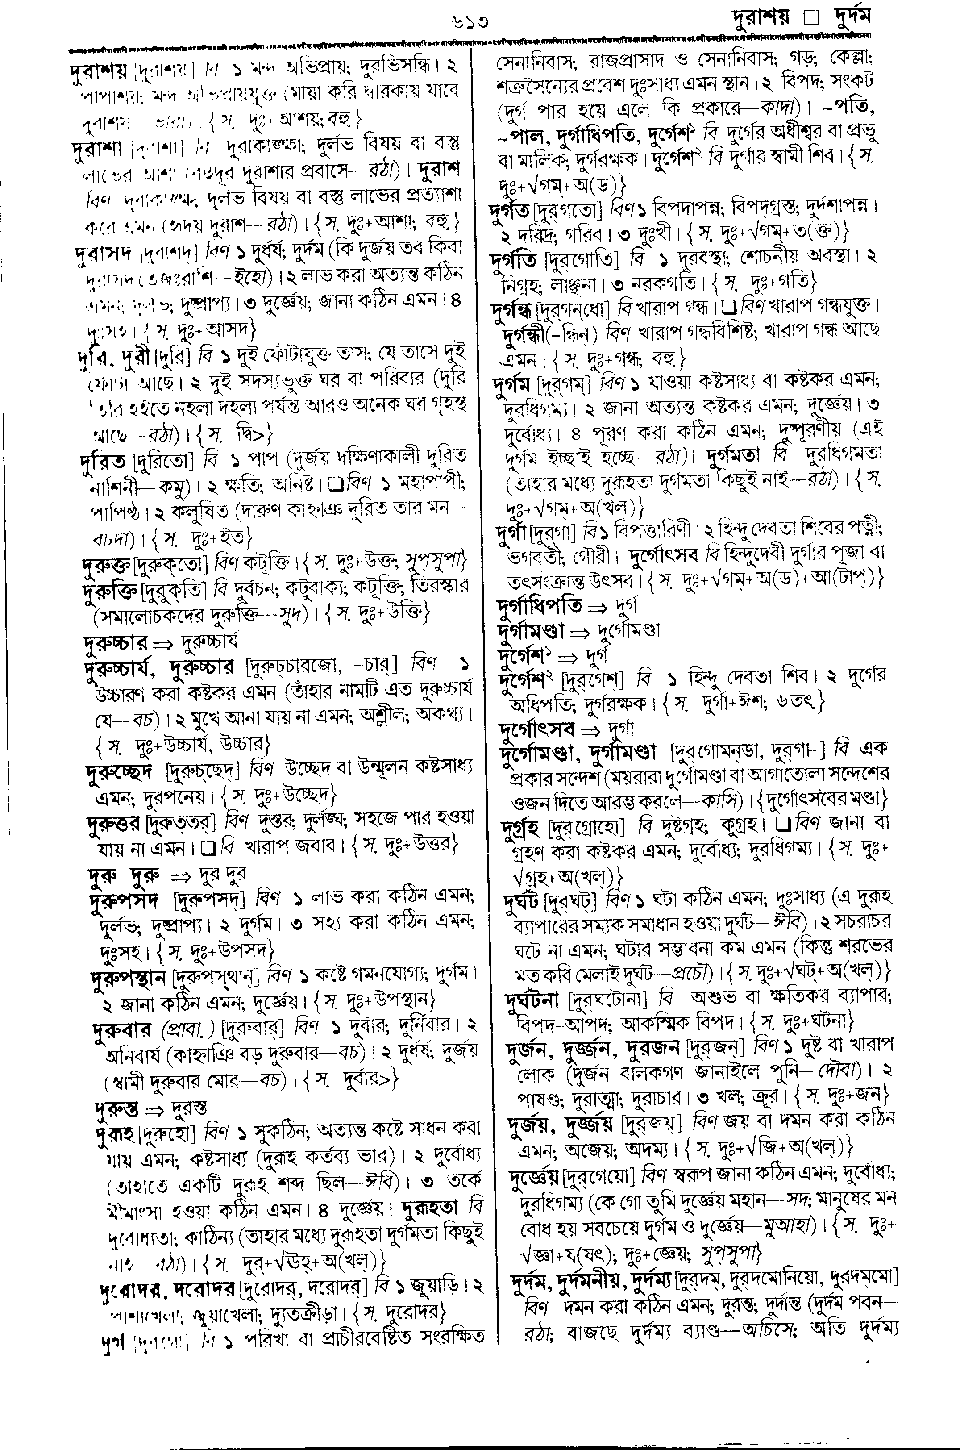 ৬১৩
দুরাশয় □ দুর্দম
দুরাশয় [দুরাশয়্] বি ১ মন্দ অভিপ্রায়; দুরভিসন্ধি। ২
পাপাশয়; মন্দ অভিপ্রায়যুক্ত (মায়া করি দ্বারকায় যাবে
দুরাশয়। {স. দুঃ+আশয়; বহু}
দুরাশা [দুরাশা] বি দুরাকাঙ্ক্ষা; দুর্লভ বিষয় বা বস্তু
লাভের আশা দুরাশার প্রবাসে–রঠা)। দুরাশ
বিণ দুরাকাঙ্ক্ষ; দুর্লভ বিষয় বা বস্তু লাভের প্রত্যাশা
করে এমন (হৃদয় দুরাশ—রঠা)। {স. দুঃ+আশা; বহু}
দুরাসদ [দুরাশদ্] বিণ ১ দুর্ধর্ষ; দুর্দম (কি দুর্জয় তব কিবা
দুরাসদ –ইহো)। ২ লাভ করা অত্যন্ত কঠিন
এমন; দুর্লভ; দুষ্প্রাপ্য। ৩ দুর্জ্ঞেয়; জানা কঠিন এমন। ৪
দুঃসহ। {স. দুঃ+আসদ}
দুরি, দুরী [দুরি] বি ১ দুই ফোঁটাযুক্ত তাস; যে তাসে দুই
ফোঁটা আছে। ২ দুই সদস্যভুক্ত ঘর বা পরিবার (দুরি
তিরি হইতে নহলা দহলা পর্যন্ত আরও অনেক ঘর গৃহস্থ
আছে –রঠা)। {স. দ্বি>}
দুরিত [দুরিতো] বি ১ পাপ (দুর্জয় দক্ষিণাকালী দুরিত
নাশিনী—কমু)। ২ ক্ষতি; অনিষ্ট। □ বিণ ১ মহাপাপী;
পাপিষ্ঠ। ২ কলুষিত (দারুণ কাহ্নাঞি দুরিত তার মন –
বচদা)। {স. দুঃ+ইত}
দুরুক্ত [দুরুক্‌তো] বিণ কটূক্তি। {স. দুঃ+উক্ত; সুপ্‌সুপা}
দুরুক্তি [দুরুক্‌তি] বি দুর্বচন; কটুবাক্য; কটূক্তি; তিরস্কার
(সমালোচকদের দুরুক্তি—সুদ)। {স. দুঃ+উক্তি}
দুরুচ্চার ⇒ দুরুচ্চার্য
দুরুচ্চার্য, দুরুচ্চার [দুরুচ্‌চারজো, –চার্] বিণ ১
উচ্চারণ করা কষ্টকর এমন (তাঁহার নামটি এত দুরুচ্চার্য
যে—বচ)। ২ মুখে আনা যায় না এমন; অশ্লীল; অকথ্য।
{স. দুঃ+উচ্চার্য, উচ্চার}
দুরুচ্ছেদ [দুরুচ্‌ছেদ্] বিণ উচ্ছেদ বা উন্মূলন কষ্টসাধ্য
এমন; দুরপনেয়। {স. দুঃ+উচ্ছেদ}
দুরুত্তর [দুরুত্‌তর্] বিণ দুস্তর; দুর্লঙ্ঘ্য; সহজে পার হওয়া
যায় না এমন। □ বি খারাপ জবাব। {স. দুঃ+উত্তর}
দুরু দুরু ⇒ দুর দুর
দুরুপসদ [দুরুপসদ্] বিণ ১ লাভ করা কঠিন এমন;
দুর্লভ; দুষ্প্রাপ্য। ২ দুর্গম। ৩ সহ্য করা কঠিন এমন;
দুঃসহ। {স. দুঃ+উপসদ}
দুরুপস্থান [দুরুপস্‌থান্] বিণ ১ কষ্টে গমনযোগ্য; দুর্গম।
২ জানা কঠিন এমন; দুর্জ্ঞেয়। {স. দুঃ+উপস্থান}
দুরুবার (প্রাবা.) [দুরুবার্] বিণ ১ দুর্বার; দুর্নিবার। ২
অনিবার্য (কাহ্নাঞি বড় দুরুবার—বচ)। ২ দুর্ধর্ষ; দুর্জয়
(স্বামী দুরুবার মোর—বচ)। {স. দুর্বার>}
দুরুস্ত ⇒ দুরস্ত
দুরূহ [দুরুহো] বিণ ১ সুকঠিন; অত্যন্ত কষ্টে সাধন করা
যায় এমন; কষ্টসাধ্য (দুরূহ কর্তব্য ভার)। ২ দুর্বোধ্য
(তাহাতে একটি দুরূহ শব্দ ছিল—ঈবি)। ৩ তর্কে
মীমাংসা হওয়া কঠিন এমন। ৪ দুর্জ্ঞেয়। দুরূহতা বি
দুর্বোধ্যতা; কাঠিন্য (তাহার মধ্যে দুরূহতা দুর্গমতা কিছুই
নাই রঠা)। {স. দুর্+√ঊহ্+অ(খল্)}
দুরোদর, দরোদর [দুরোদর্, দরোদর্] বি ১ জুয়াড়ি। ২
পাশাখেলা; জুয়াখেলা; দ্যূতক্রীড়া। {স. দুরোদর}
দুর্গ [দুরগো] বি ১ পরিখা বা প্রাচীরবেষ্টিত সংরক্ষিত
সেনানিবাস; রাজপ্রাসাদ ও সেনানিবাস; গড়; কেল্লা;
শত্রুসৈন্যের প্রবেশ দুঃসাধ্য এমন স্থান। ২ বিপদ; সংকট
(দুর্গ পার হয়ে এলে কি প্রকারে—কাদা)। ~পতি,
~পাল, দুর্গাধিপতি, দুর্গেশ১ বি দুর্গের অধীশ্বর বা প্রভু
বা মালিক; দুর্গরক্ষক। দুর্গেশ২ বি দুর্গার স্বামী শিব। {স.
দুঃ+√গম্+অ(ড)}
দুর্গত [দুরগতো] বিণ ১ বিপদাপন্ন; বিপদগ্রস্ত; দুর্দশাপন্ন।
২ দরিদ্র; গরিব। ৩ দুঃখী। {স. দুঃ+√গম্+ত(ক্ত)}
দুর্গতি [দুরগোতি] বি ১ দুরবস্থা; শোচনীয় অবস্থা। ২
নিগ্রহ; লাঞ্ছনা। ৩ নরকগতি। {স. দুঃ+গতি}
দুর্গন্ধ [দুরগন্‌ধো] বি খারাপ গন্ধ। □ বিণ খারাপ গন্ধযুক্ত।
দুর্গন্ধী(–ন্ধিন) বিণ খারাপ গন্ধবিশিষ্ট; খারাপ গন্ধ আছে
এমন। {স. দুঃ+গন্ধ; বহু}
দুর্গম [দুরগম্] বিণ ১ যাওয়া কষ্টসাধ্য বা কষ্টকর এমন;
দুরধিগম্য। ২ জানা অত্যন্ত কষ্টকর এমন; দুর্জ্ঞেয়। ৩
দুর্বোধ্য। ৪ পূরণ করা কঠিন এমন; দুষ্পূরণীয় (এই
দুর্গম ইচ্ছাই হচ্ছে –রঠা)। দুর্গমতা বি দুরধিগমতা
(তাহার মধ্যে দুরূহতা দুর্গমতা কিছুই নাই—রঠা)। {স.
দুঃ+√গম্+অ(খল্)}
দুর্গা [দুরগা] বি ১ বিপত্তারিণী। ২ হিন্দু দেবতা শিবের পত্নী;
ভগবতী; গৌরী। দুর্গোৎসব বি হিন্দুদেবী দুর্গার পূজা বা
তৎসংক্রান্ত উৎসব। {স. দুঃ+√গম্+অ(ড)+আ(টাপ্)}
দুর্গাধিপতি ⇒ দুর্গ
দুর্গামণ্ডা ⇒ দুর্গোমণ্ডা
দুর্গেশ১ ⇒ দুর্গ
দুর্গেশ২ [দুরগেশ্] বি ১ হিন্দু দেবতা শিব। ২ দুর্গের
অধিপতি; দুর্গরক্ষক। {স. দুর্গা+ঈশ; ৬তৎ}
দুর্গোৎসব ⇒ দুর্গা
দুর্গোমণ্ডা, দুর্গামণ্ডা [দুরগোমন্‌ডা, দুরগা-] বি এক
প্রকার সন্দেশ (ময়রারা দুর্গোমণ্ডা বা আগাতোলা সন্দেশের
ওজন দিতে আরম্ভ করলে—কাসি)। {দুর্গোৎসবের মণ্ডা}
দুর্গ্রহ [দুরগ্রোহো] বি দুষ্টগ্রহ; কুগ্রহ। □ বিণ জানা বা
গ্রহণ করা কষ্টকর এমন; দুর্বোধ্য; দুরধিগম্য। {স. দুঃ+
√গ্রহ্+অ(খল্)}
দুর্ঘট [দুরঘট্] বিণ ১ ঘটা কঠিন এমন; দুঃসাধ্য (এ দুরূহ
ব্যাপারের সম্যক সমাধান হওয়া দুর্ঘট—ঈবি)। ২ সচরাচর
ঘটে না এমন; ঘটার সম্ভাবনা কম এমন (কিন্তু শরভের
মত কবি মেলাই দুর্ঘট—প্রচৌ)। {স. দুঃ+√ঘট্+অ(খল্)}
দুর্ঘটনা [দুরঘটোনা] বি অশুভ বা ক্ষতিকর ব্যাপার;
বিপদ-আপদ; আকস্মিক বিপদ। {স. দুঃ+ঘটনা}
দুর্জন, দুর্জ্জন, দুরজন [দুরজন্] বিণ ১ দুষ্ট বা খারাপ
লোক (দুর্জন বালকগণ জানাইলে পুনি—দৌবা)। ২
পাষণ্ড; দুরাত্মা; দুরাচার। ৩ খল; ক্রূর। {স. দুঃ+জন}
দুর্জয়, দুর্জ্জয় [দুরজয়্] বিণ জয় বা দমন করা কঠিন
এমন; অজেয়; অদম্য। {স. দুঃ+√জি+অ(খল্)}
দুর্জ্ঞেয় [দুরগেয়ো] বিণ স্বরূপ জানা কঠিন এমন; দুর্বোধ্য;
দুরধিগম্য (কে গো তুমি দুর্জ্ঞেয় মহান—সদ; মানুষের মন
বোধ হয় সবচেয়ে দুর্গম ও দুর্জ্ঞেয়—মুআহা)। {স. দুঃ+
√জ্ঞা+য(যৎ); দুঃ+জ্ঞেয়; সুপ্‌সুপা}
দুর্দম, দুর্দমনীয়, দুর্দম্য [দুরদম্, দুরদমোনিয়ো, দুরদম্‌মো]
বিণ দমন করা কঠিন এমন; দুরন্ত; দুর্দান্ত (দুর্দম পবন—
রঠা; বাজছে দুর্দম্য ব্যাণ্ড—অচিসে; অতি দুর্দম্য